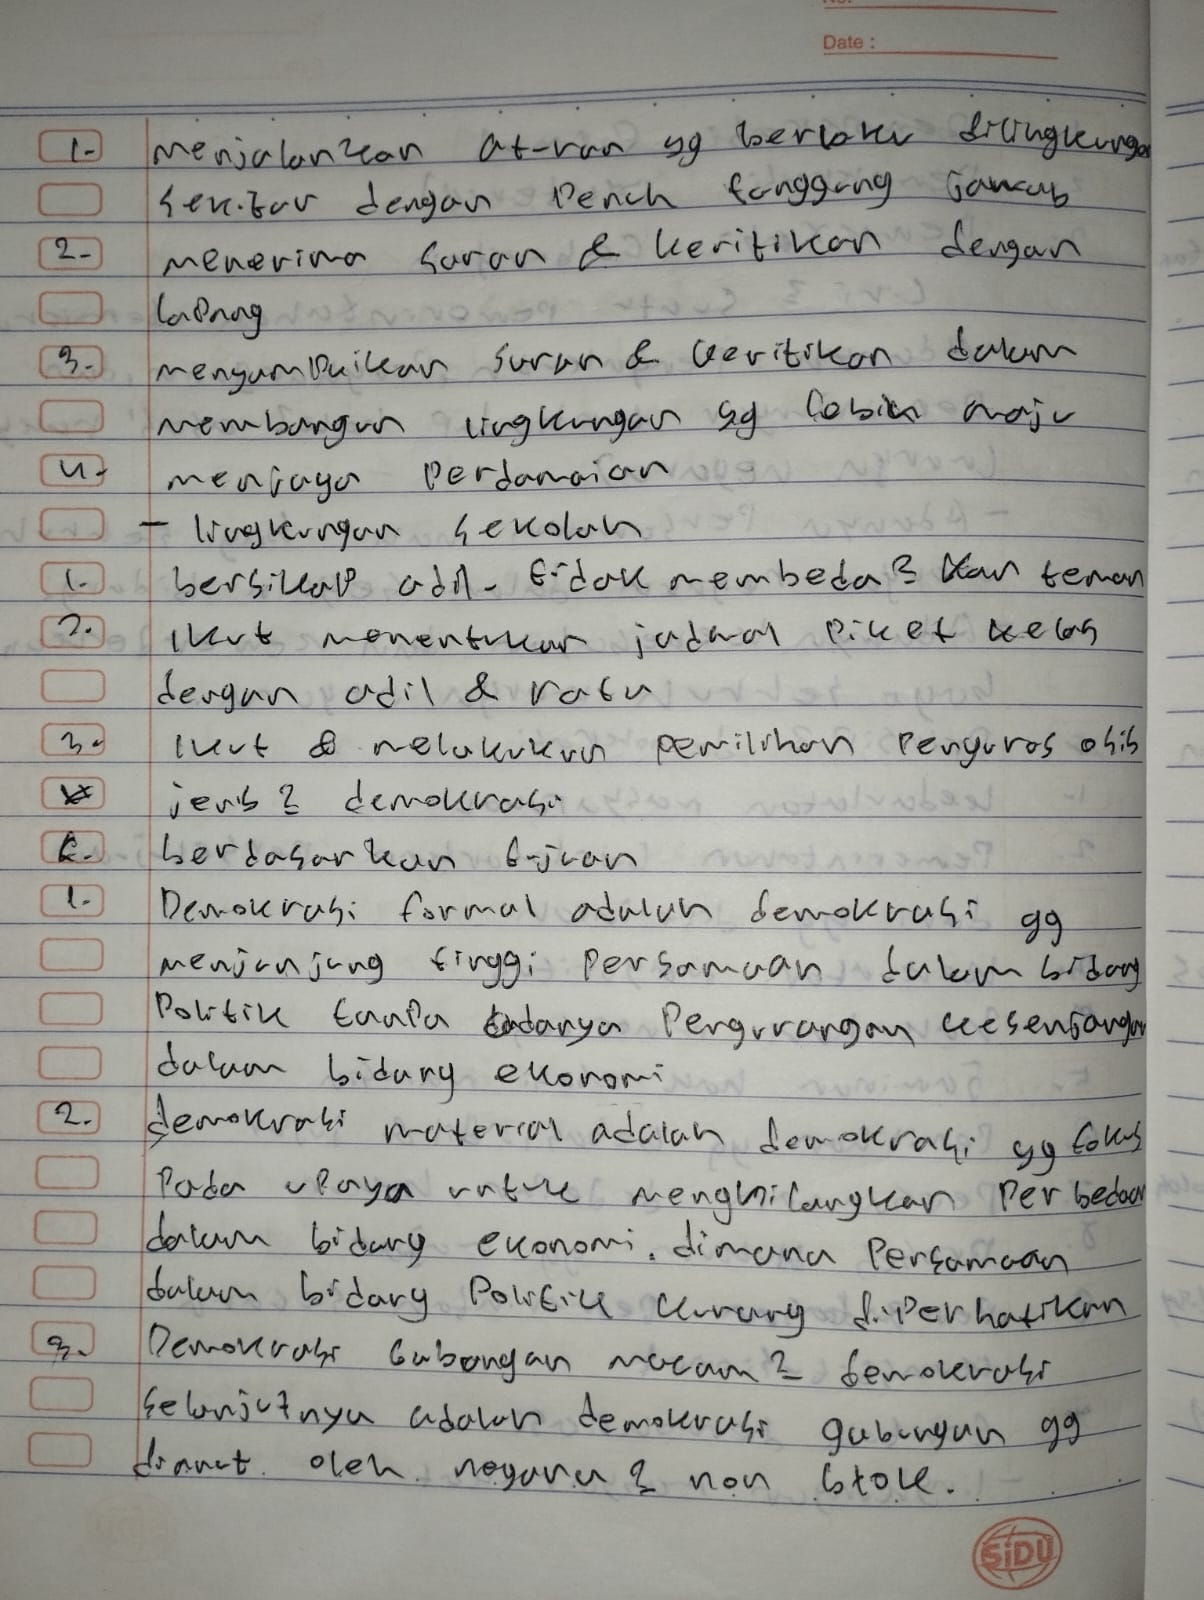 No:
Date :
1. menjalankan aturan yg berlaku dilingkungan
sekitar dengan penuh tanggung jawab
2. menerima saran & keritikan dengan
lapang
3. menyampaikan saran & keritikan dalam
membangun lingkungan yg lebih maju
4. menjaga perdamaian
- lingkungan sekolah
1. bersikap adil. tidak membeda2 kan teman
2. ikut menentukan jadwal piket kelas
dengan adil & rata
3. ikut & melakukan pemilihan pengurus osis
jenis2 demokrasi
berdasarkan tujuan
1. Demokrasi formal adalah demokrasi yg
menjunjung tinggi persamaan dalam bidang
Politik tanpa adanya pengurangan kesenjangan
dalam bidang ekonomi
2. demokrasi material adalah demokrasi yg fokus
Pada upaya untuk menghilangkan Perbedaan
dalam bidang ekonomi. dimana Persamaan
dalam bidang Politik kurang diperhatikan
3. Demokrasi Gabungan macam2 demokrasi
selanjutnya adalah demokrasi gabungan yg
dianut oleh negara2 non blok.
SIDU